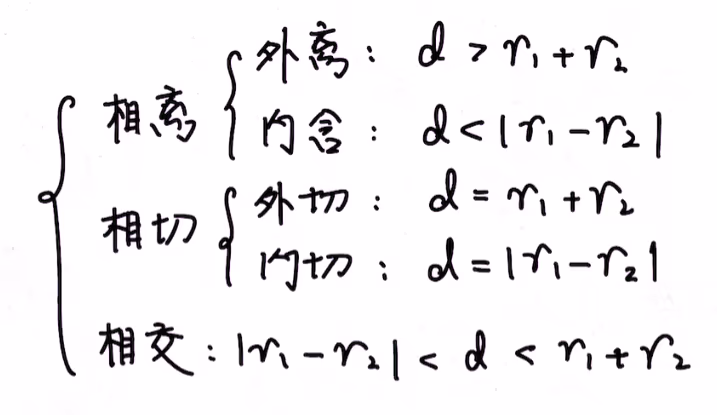 相离
外离：d > r₁ + r₂
内含：d < |r₁ - r₂|
相切
外切：d = r₁ + r₂
内切：d = |r₁ - r₂|
相交：|r₁ - r₂| < d < r₁ + r₂